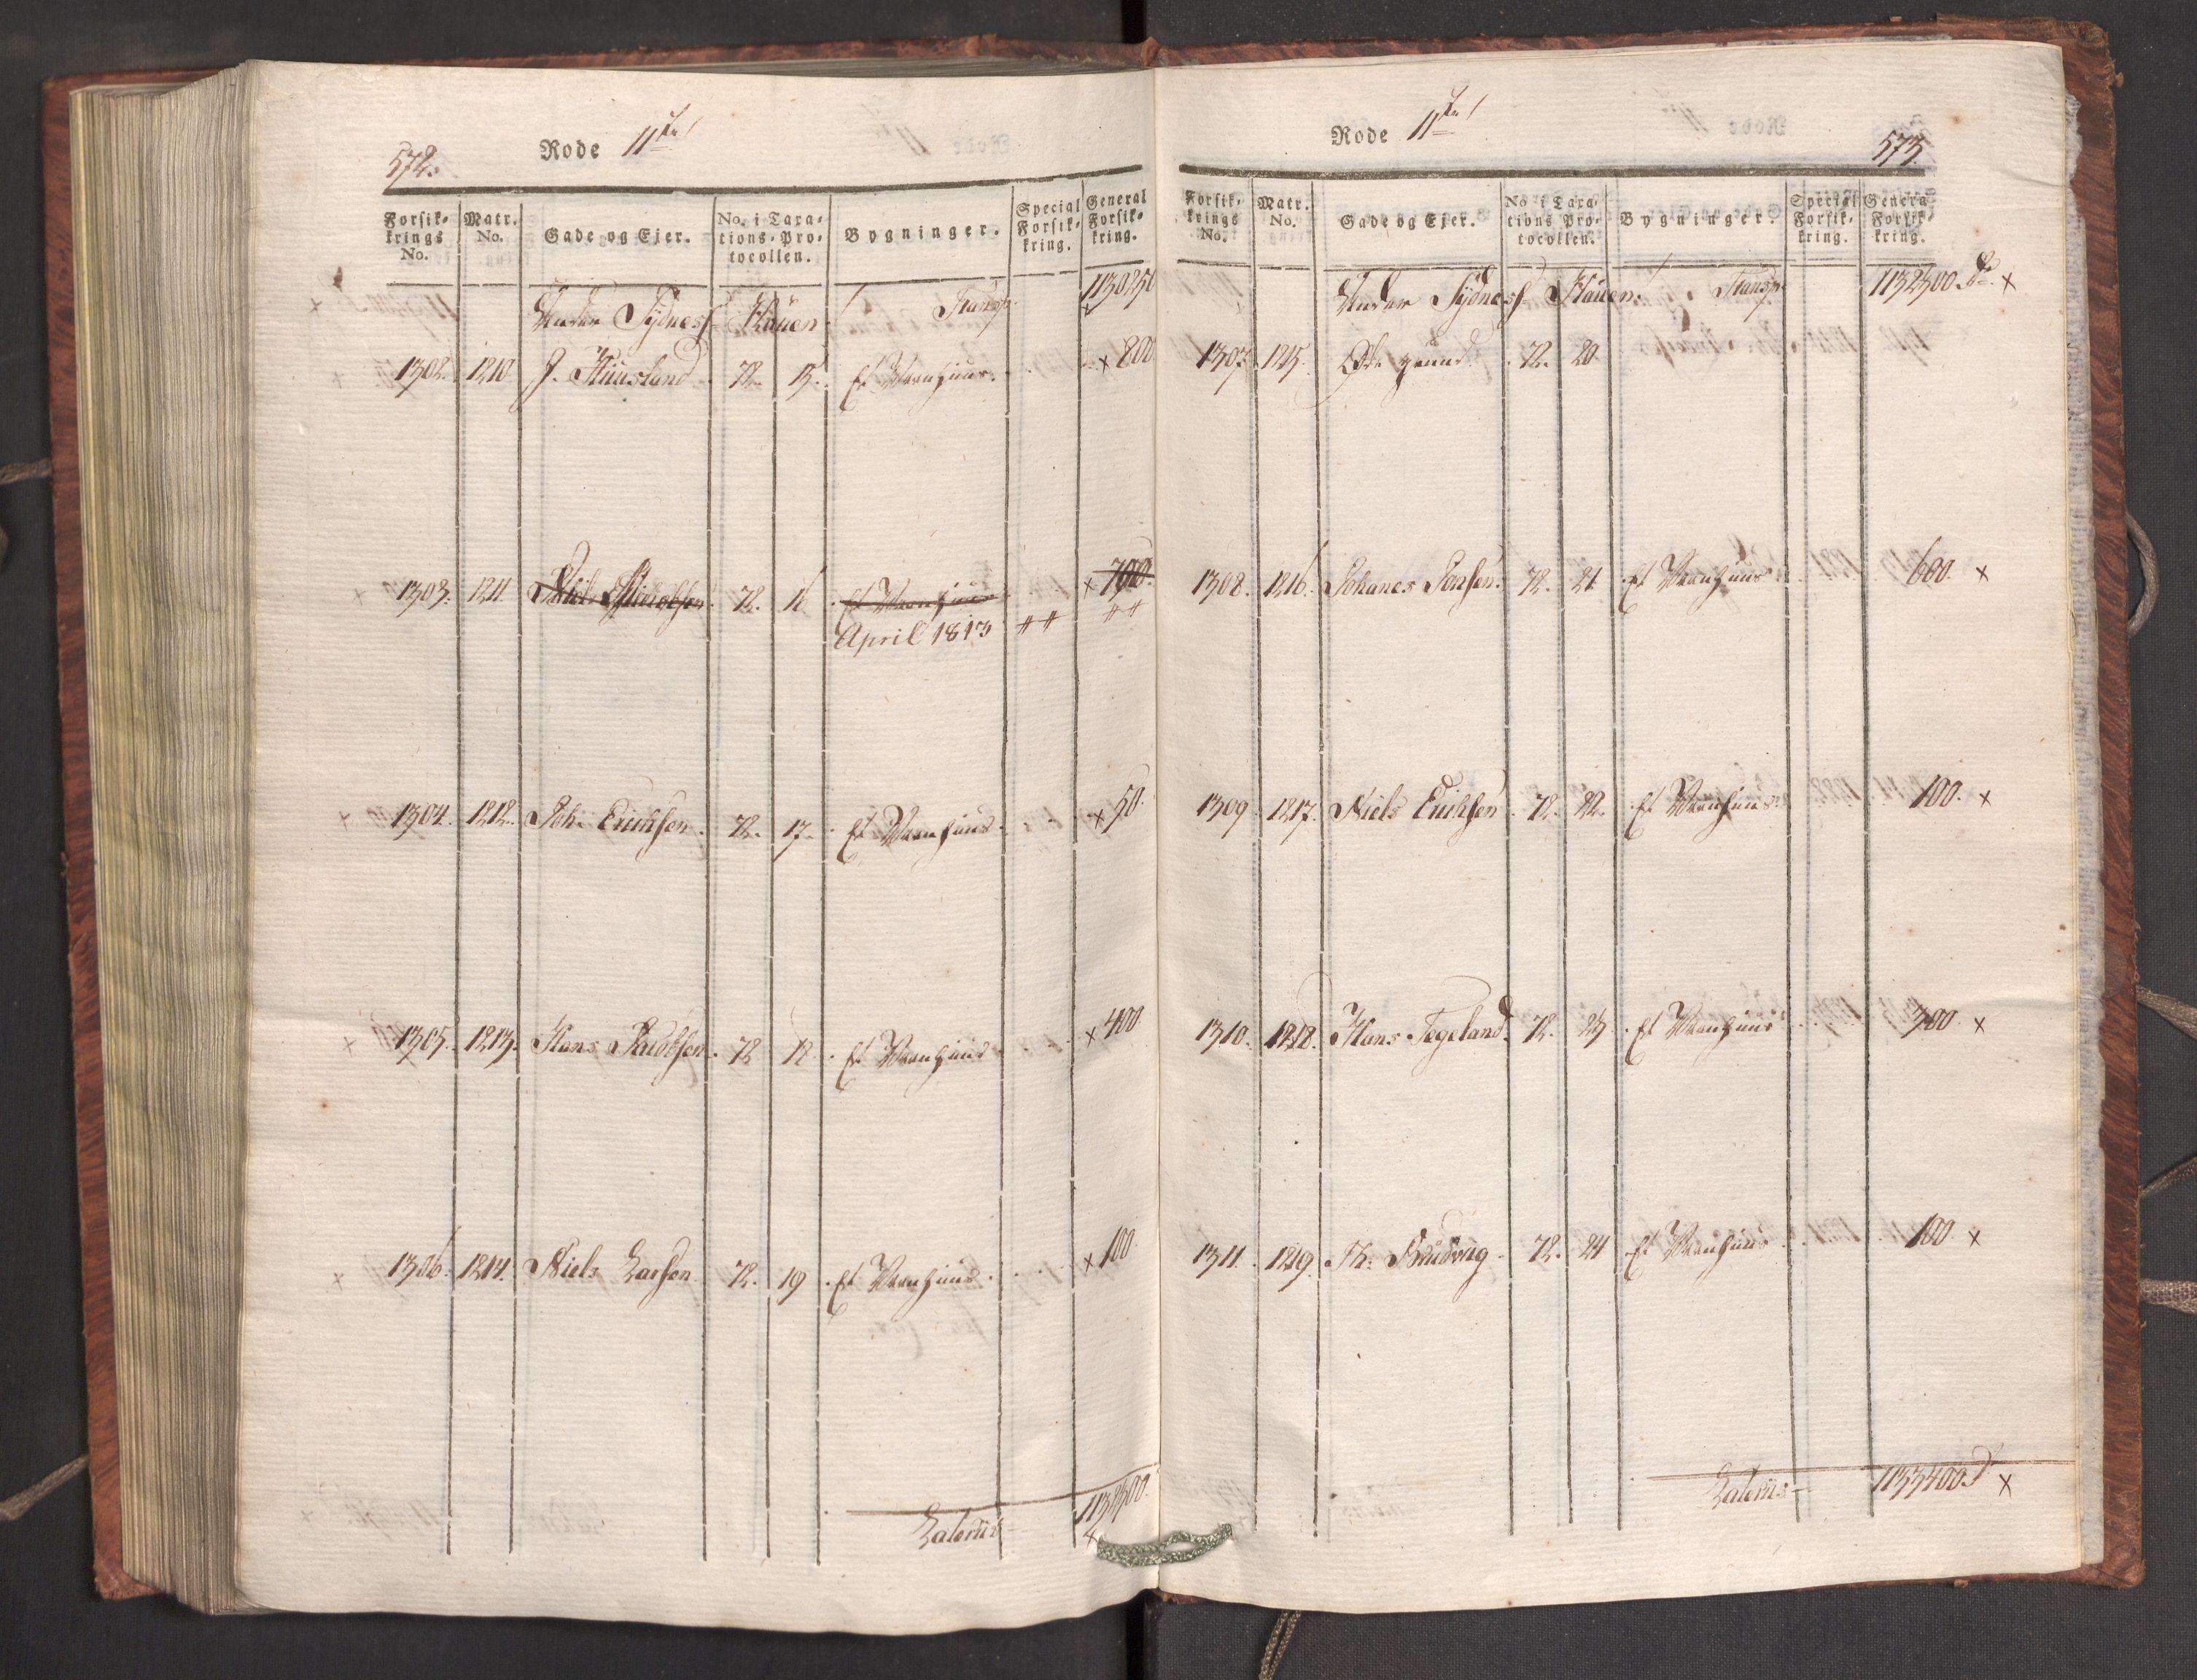 572.
Rode 11te
Forsikrings No. | Matr. No. | Gade og Ejer. | No. i Taxations-Protocollen. | Bygninger. | Special Forsikring. | General Forsikring.
Under Sydnes Hauen Transp. 1130250
1302. 1210 J. Huusland 72. 15. Et Vaanhuus x 800
1303. 1211 72. 16 Et Vaanhuus x 700.
April 1813 ++ ++
1304. 1212. Joh. Erichsen. 72. 17. Et Vaanhuus x 50.
1305. 1213. Hans 72 18. Et Vaanhuus x 400.
1306. 1214. Niels Larsen 72. 19. Et Vaanhuus x 100.
Lateris 1132300.
573.
Rode 11te
Forsikrings No. | Matr. No. | Gade og Ejer. | No i Taxations Protocollen. | Bygninger. | Special Forsikring. | General Forsikring.
Under Sydnes Hauen. Transp. 1132300 x
1307. 1215. Øde grund 72. 20.
1308. 1216. Johanes Jonsen. 72. 21. Et Vaanhuus 600. x
1309 1217. Niels Erichsen 72. 22. Et Vaanhuus 100. x
1310. 1218. Hans Tegeland. 72. 23. Et Vaanhuus 300. x
1311. 1219. 72. 24 Et Vaanhuus 100 x
Lateris 1133400 x